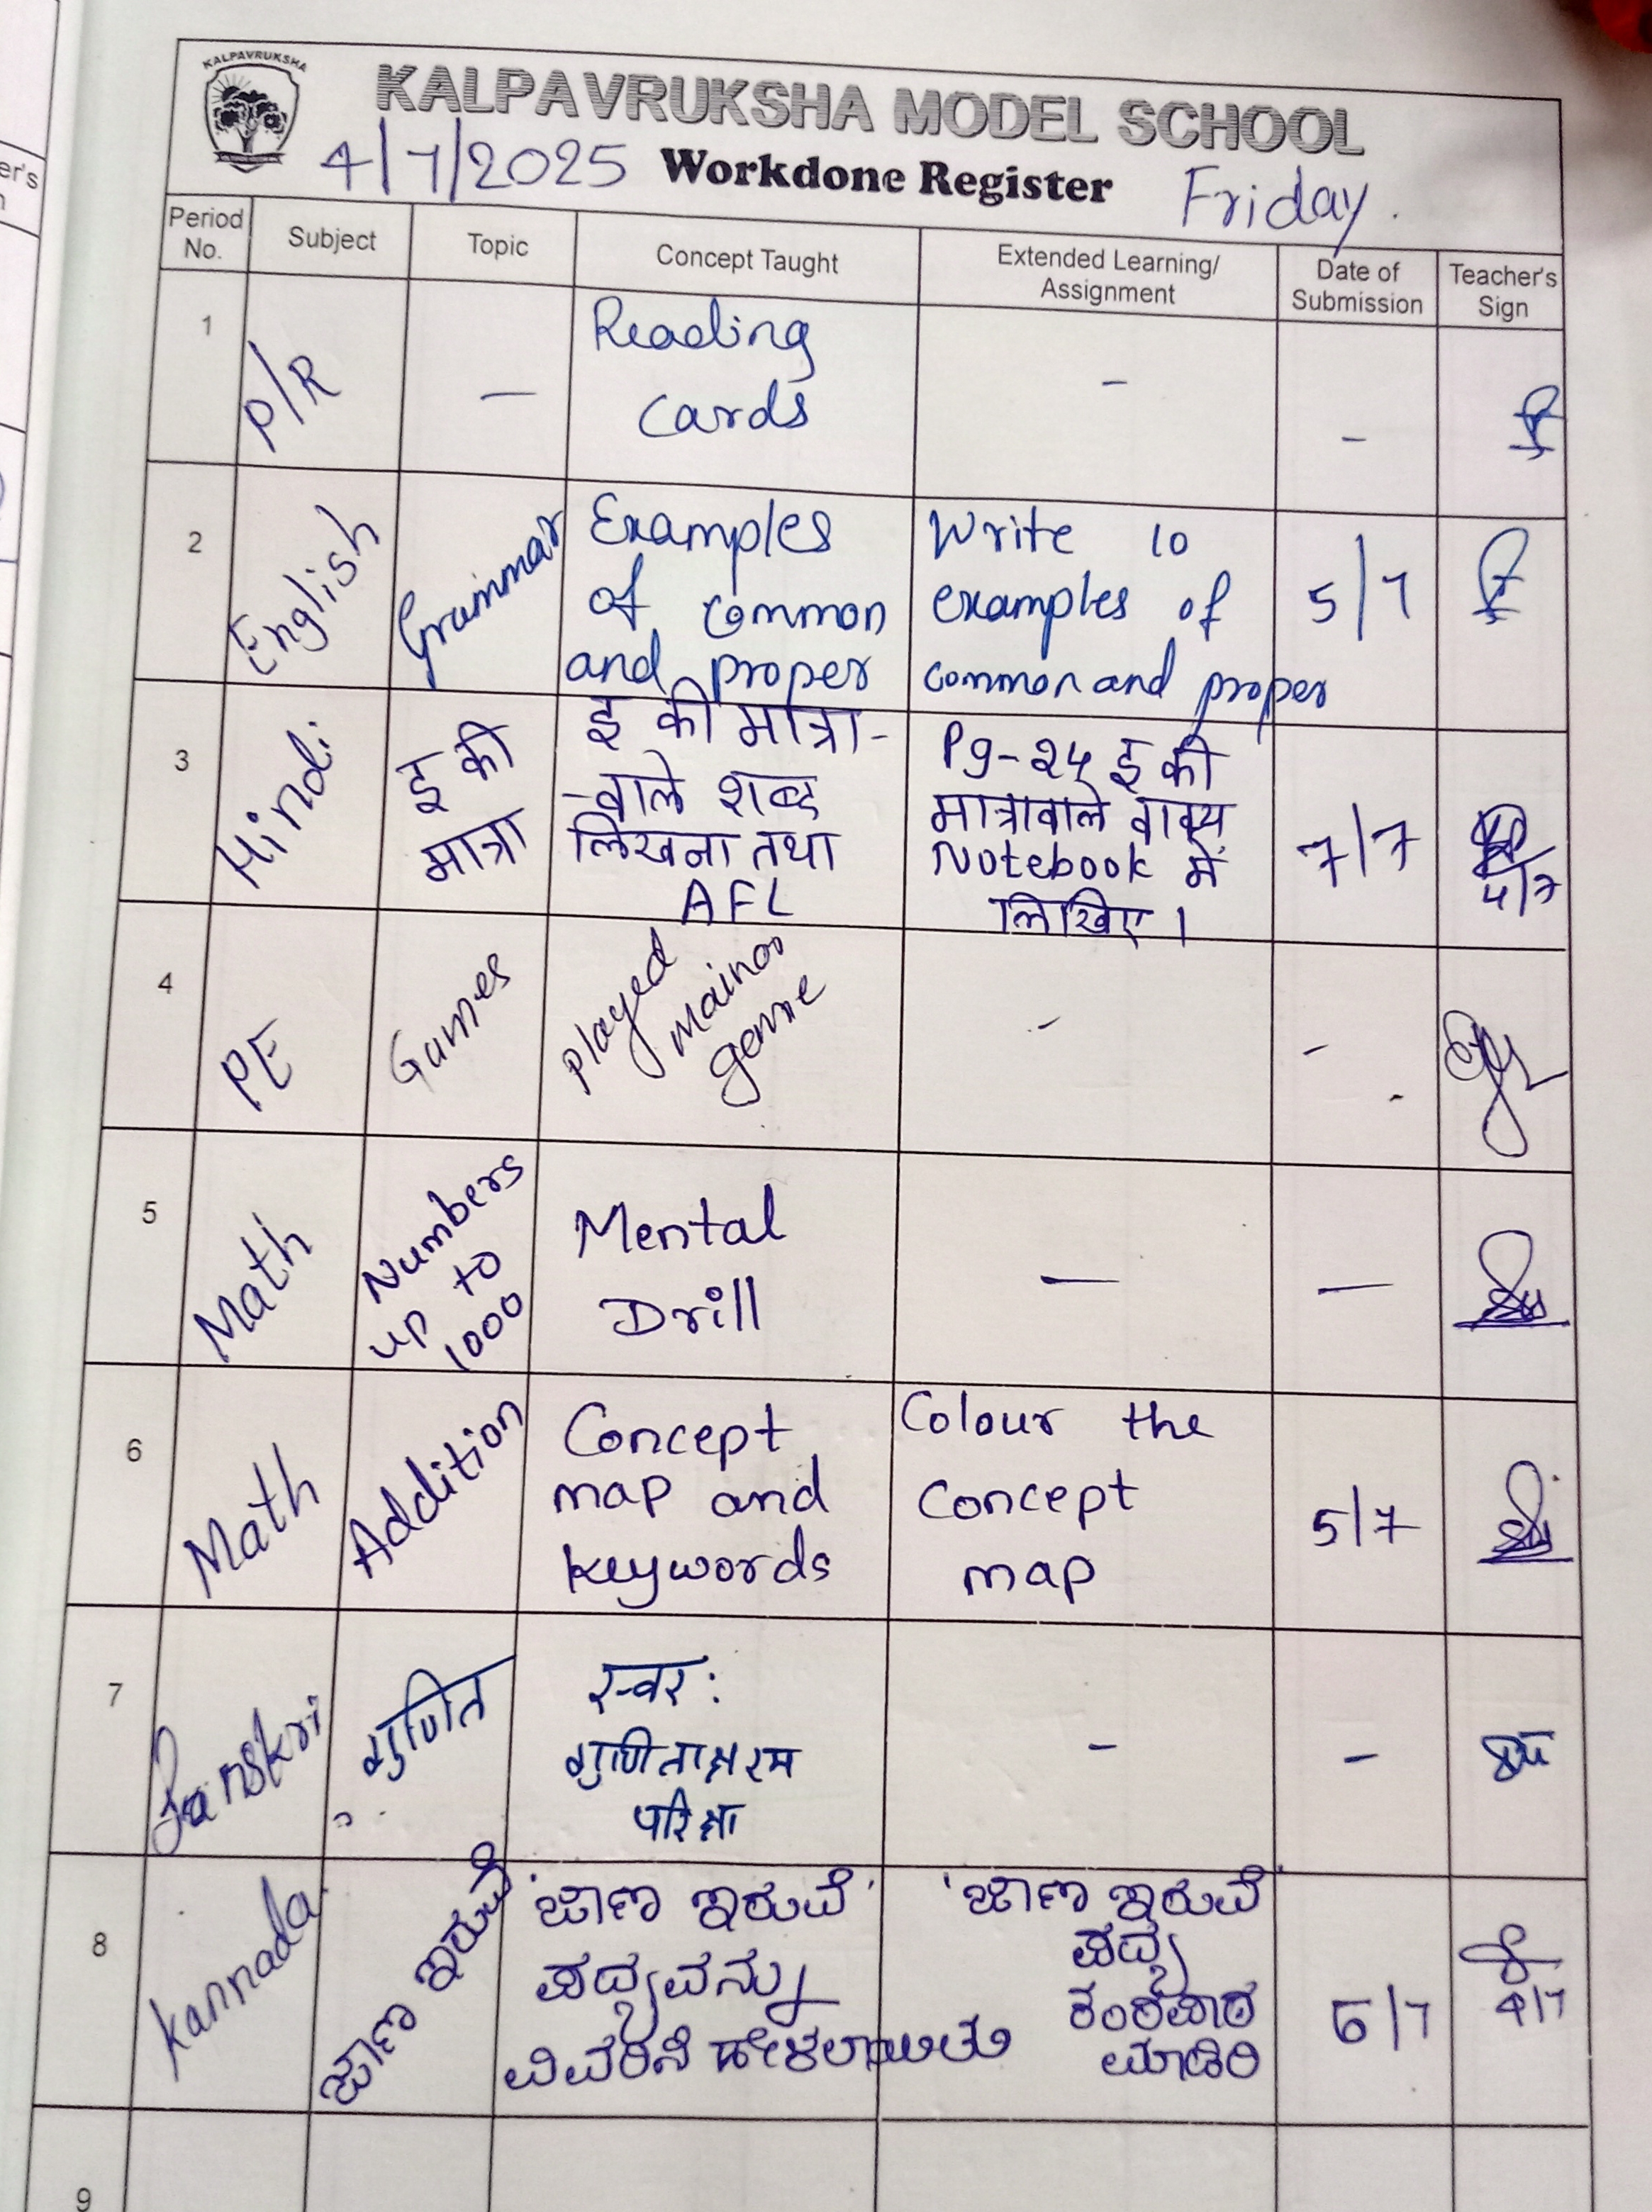 KALPAVRUKSHA
KALPAVRUKSHA MODEL SCHOOL
4/7/2025 Workdone Register Friday.
Period No. Subject Topic Concept Taught Extended Learning/ Assignment Date of Submission Teacher's Sign
1 P/R — Reading - -
Cards
2 English Grammar Examples Write 10 5/7
of common examples of
and proper common and proper
3 Hindi इ की इ की मात्रा- Pg-२५ इ की 7/7
मात्रा -वाले शब्द मात्रावाले वाक्य
लिखना तथा Notebook में
AFL लिखिए।
4 PE Games played - -
mainor
game
5 Math Numbers Mental — —
up to Drill
1000
6 Math Addition Concept Colour the 5/7
map and Concept
keywords map
7 Sanskri गुणित स्वर: - -
गुणिताक्षरम
परिक्षा
8 Kannada ಜಾಣ ಇರುವೆ 'ಜಾಣ ಇರುವೆ' 'ಜಾಣ ಇರುವೆ' 6/7
ಪದ್ಯವನ್ನು ಪದ್ಯ
ವಿವರಿಸಿ ಹೇಳಲಾಯಿತು ಕಂಠಪಾಠ
ಮಾಡಿರಿ
9